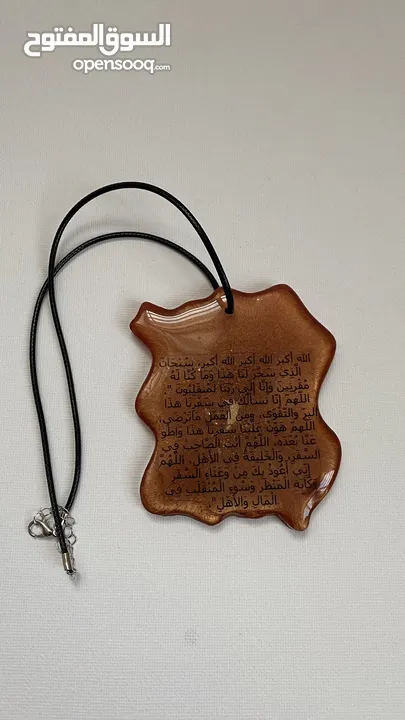 السوق المفتوح
opensooq.com
الله أكبر الله أكبر الله أكبر، سُبْحَانَ
الَّذِي سَخَّرَ لَنَا هَذَا وَمَا كُنَّا لَهُ
مُقْرِنِينَ وَإِنَّا إِلَى رَبِّنَا لَمُنْقَلِبُونَ ".
اللَّهُمَّ إِنَّا نَسْأَلُكَ فِي سَفَرِنَا هَذَا
البِرَّ وَالتَّقْوَى، وَمِنَ الْعَمَلِ مَا تَرْضَى،
اللَّهُمَّ هَوِّنْ عَلَيْنَا سَفَرَنَا هَذَا وَاطْوِ
عَنَّا بُعْدَهُ، اللَّهُمَّ أَنْتَ الصَّاحِبُ فِي
السَّفَرِ، وَالْخَلِيفَةُ فِي الأَهْلِ، اللَّهُمَّ
إِنِّي أَعُوذُ بِكَ مِنْ وَعْثَاءِ السَّفَرِ
وَكَآبَةِ الْمَنْظَرِ وَسُوءِ الْمُنْقَلَبِ فِي
الْمَالِ وَالأَهْلِ".